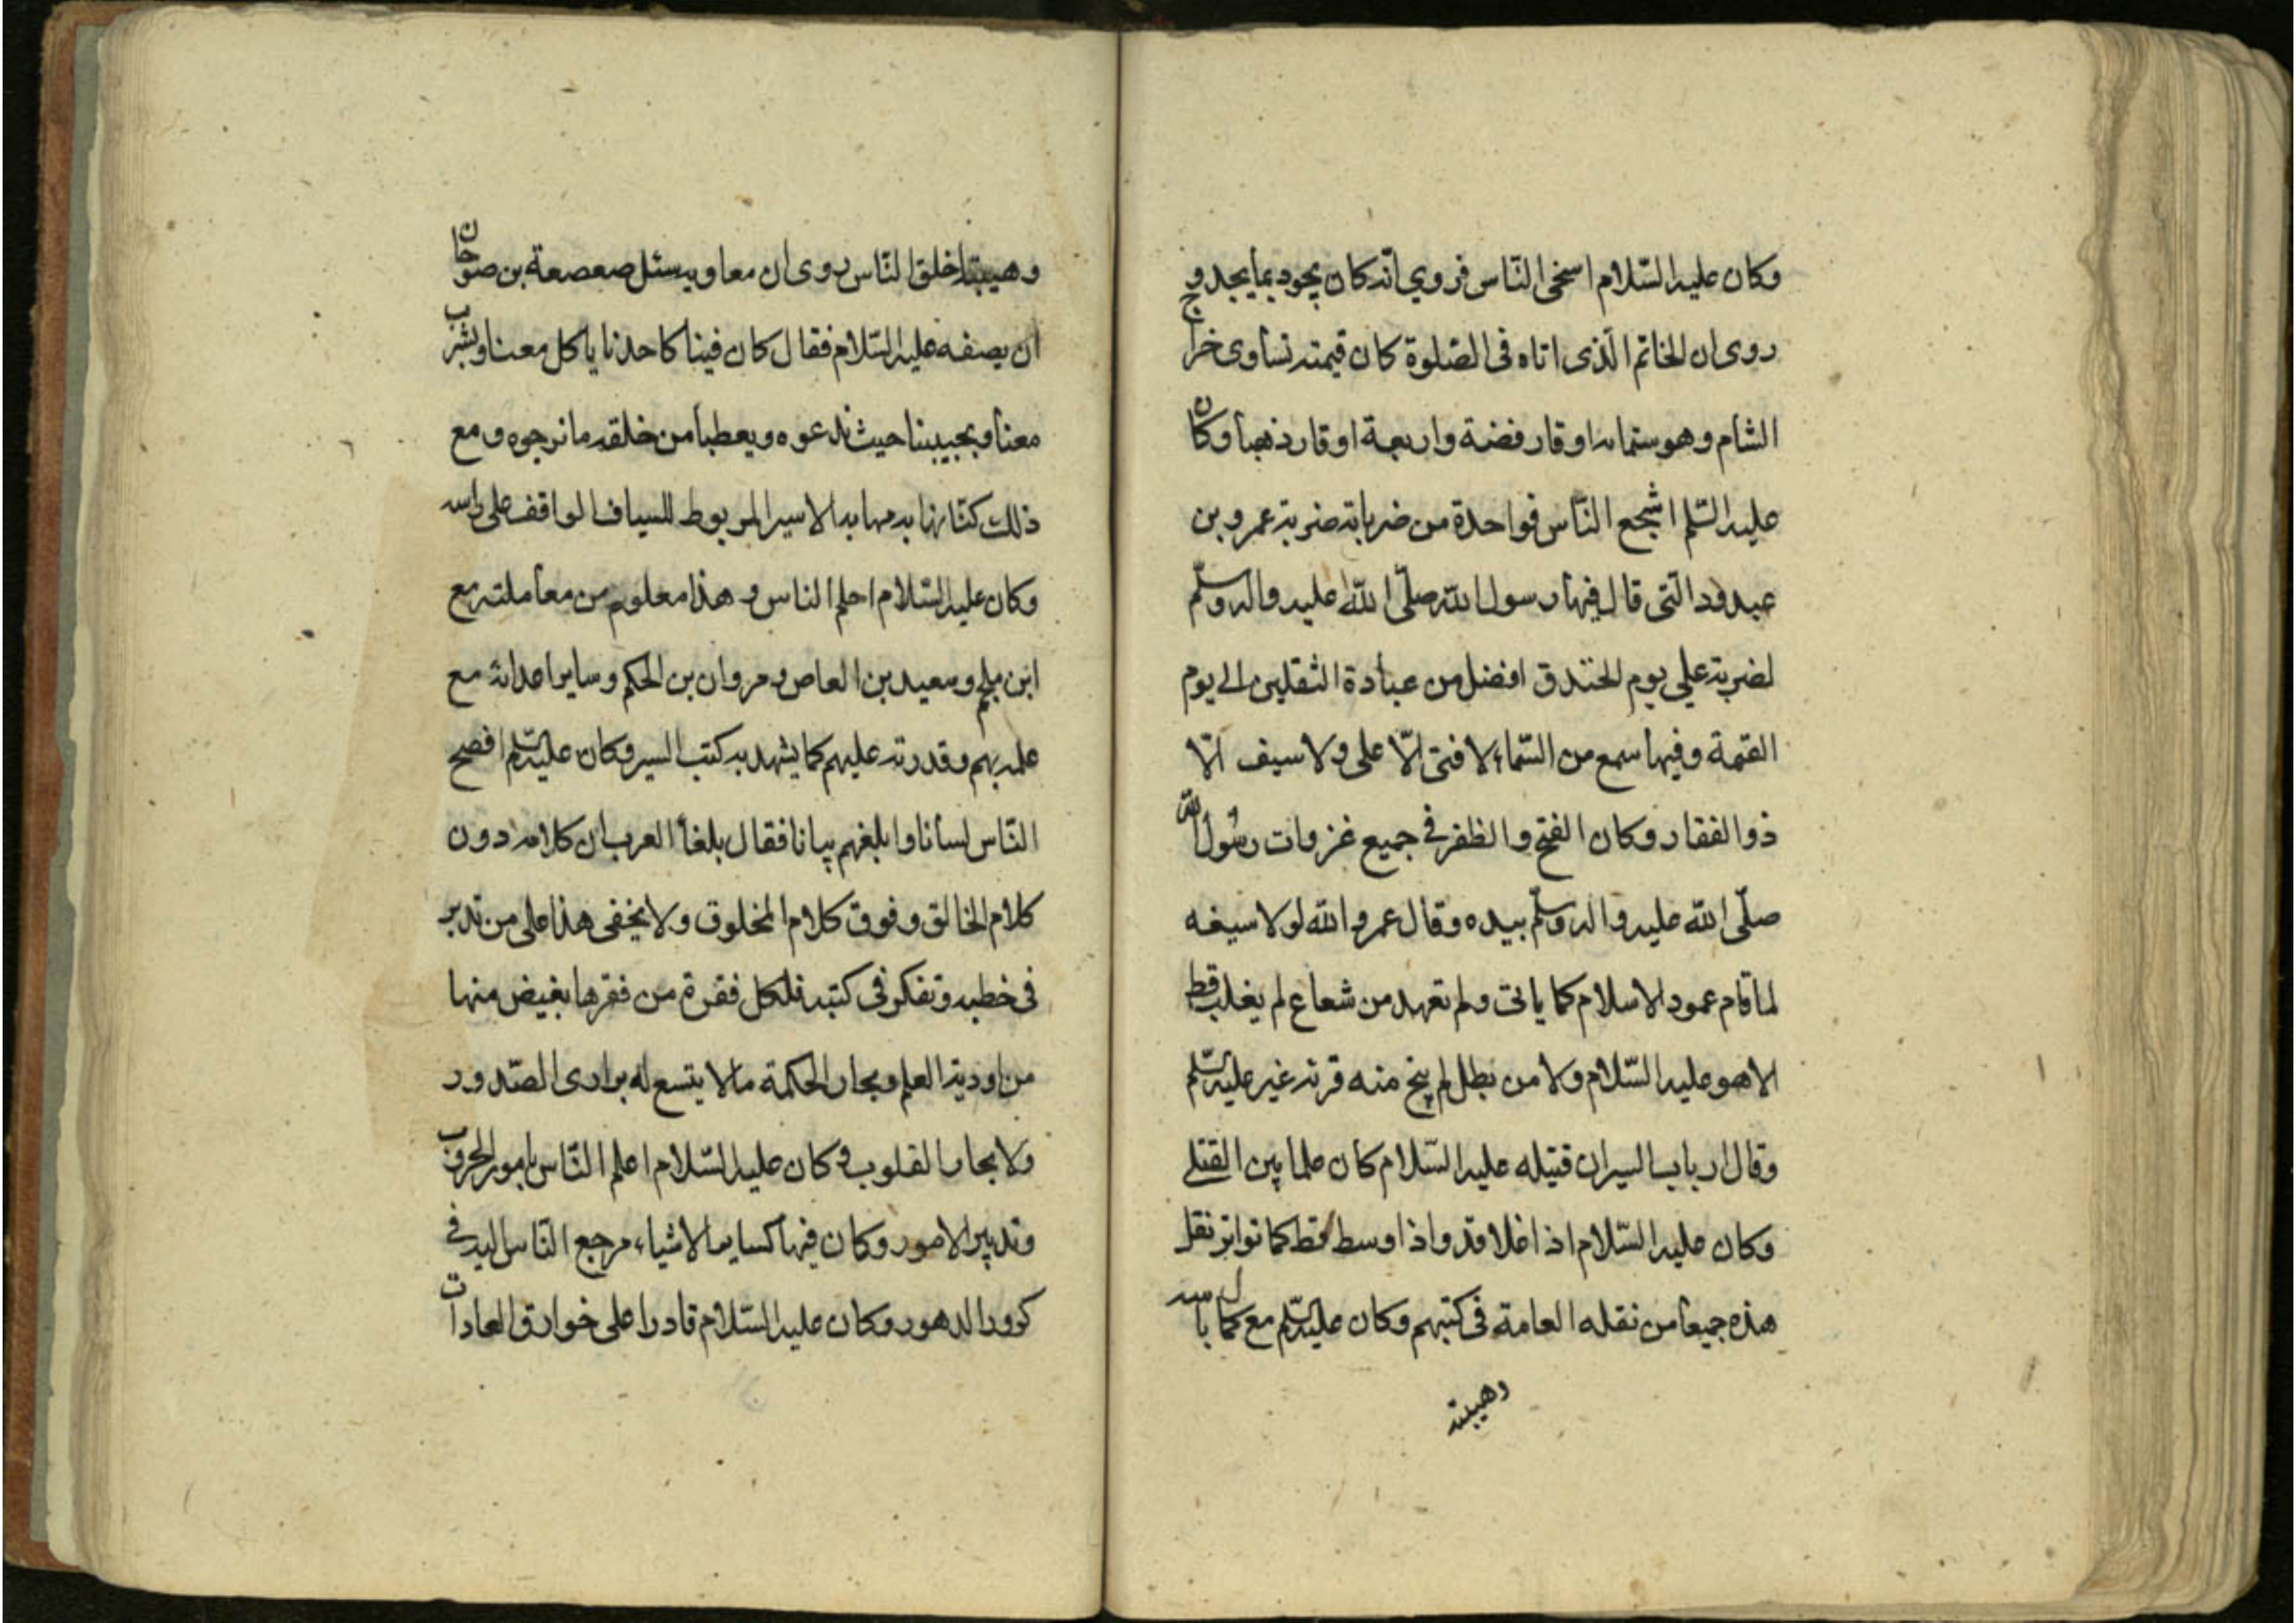 وكان عليه السّلام اسخى النّاس فروي انّه كان يجود بما يجد و
روى ان الخاتم الّذى اتاه فى الصّلوة كان قيمته تساوى خراج
الشام وهو ستمايه اوقار فضة واربعة اوقار ذهبا وكان
عليه السّلم اشجع النّاس فواحدة من ضرباته ضربة عمرو بن
عبدود الّتى قال فيها رسول اللّه صلّى اللّه عليه واله وسلّم
لضربة على يوم الخندق افضل من عبادة الثقلين الى يوم
القيمة وفيها سمع من السّماء لا فتى الّا على ولا سيف الّا
ذوالفقار وكان الفتح والظفر فى جميع غزوات رسول اللّه
صلّى اللّه عليه واله وسلّم بيده وقال عمر واللّه لولا سيفه
لما قام عمود الاسلام كما ياتى ولم تعهد من شجاع لم يغلب قط
الا هو عليه السّلام ولا من بطل لم ينج منه قرنه غير عليه السّلم
وقال ارباب السير ان قتيله عليه السّلام كان علما بين القتلى
وكان عليه السّلام اذا علا قد واذا وسط قط كما تواتر نقل
هذه جميعا من نقله العامة فى كتبهم وكان عليه السّلم مع كمال باسه
وهيبته
وهيبته اخلق النّاس روى ان معاويه سئل صعصعة بن صوحان
ان يصفه عليه السّلام فقال كان فينا كاحدنا ياكل معنا ويشرب
معنا ويجيبنا حيث ندعوه ويعطبا من خلقه ما نرجوه ومع
ذلك كنّا نهابه مهابه الاسير المربوط للسياف الواقف على راسه
وكان عليه السّلام احلم الناس و هذا معلوم من معاملته مع
ابن ملجم وسعيد بن العاص ومروان بن الحكم وساير اعدائه مع
علمه بهم وقدرته عليهم كما يشهد به كتب السير وكان عليه السّلم افصح
النّاس لسانا وابلغهم بيانا فقال بلغأ العرب ان كلامه دون
كلام الخالق وفوق كلام المخلوق ولا يخفى هذا على من تدبر
فى خطبه وتفكر فى كتبه فلكل فقرة من فقرها بغيض منها
من اودية العلم وبحار الحكمة مالا يتسع له برارى الصّدور
ولا بحار القلوب وكان عليه السّلام اعلم النّاس بامور الحروب
وتدبير الامور وكان فيها كساير الاشياء مرجع النّاس اليه فى
كرور الدهور وكان عليه السّلام قادرا على خوارق العادات